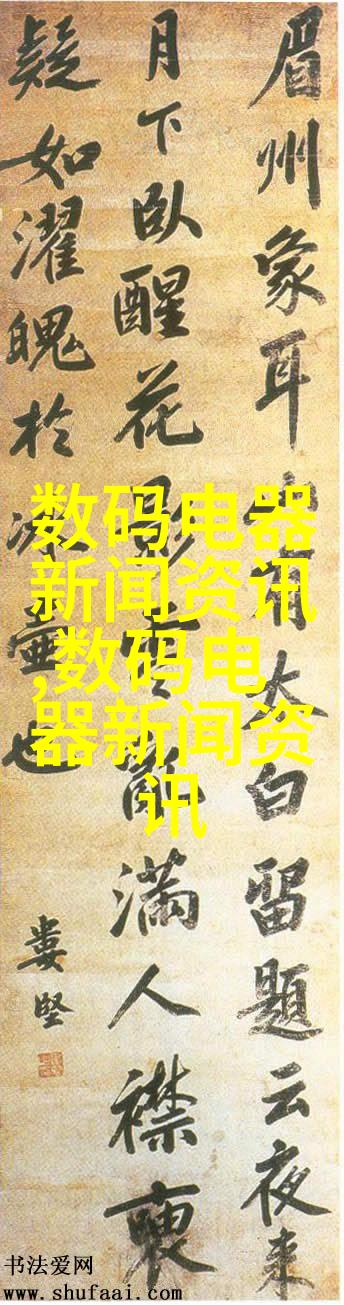 眉州象耳山有太白留題云夜来
月下臥醒花影零亂滿人襟
疑如濯魄於冰壺也
婁堅
数码电器
新闻资讯
,数码电
器新闻资
讯
书法爱网
www.shufaai.com